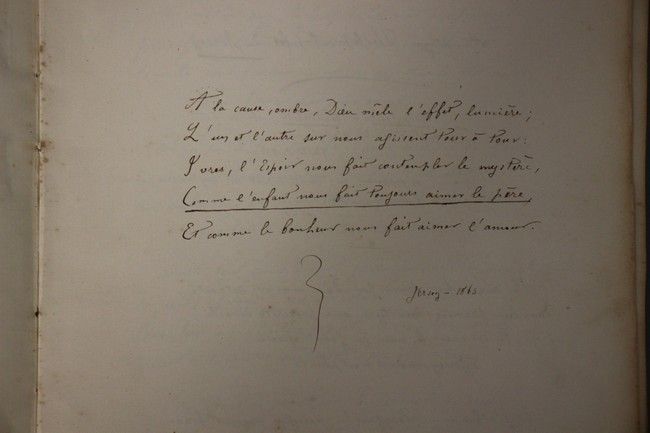 A la cause, ombre, Dieu mêle l'effet, lumière;
L'un et l'autre sur nous agissent tour à tour:
Ivres, l'Espoir nous fait contempler le mystère,
Comme l'enfant nous fait toujours aimer le père,
Et comme le bonheur nous fait aimer l'amour.
Jersey - 1863